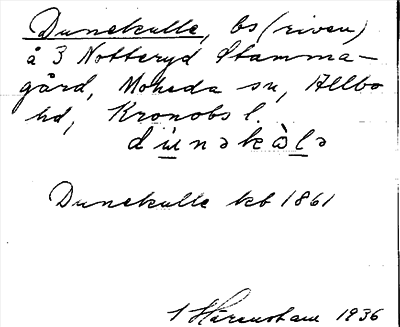 Dunekulle, bs (riven)
å 3 Notteryd Stamma-
gård, Moheda sn, Allbo
hd, Kronobs l.
dùnəkàlə
Dunekulle kb 1861
1936